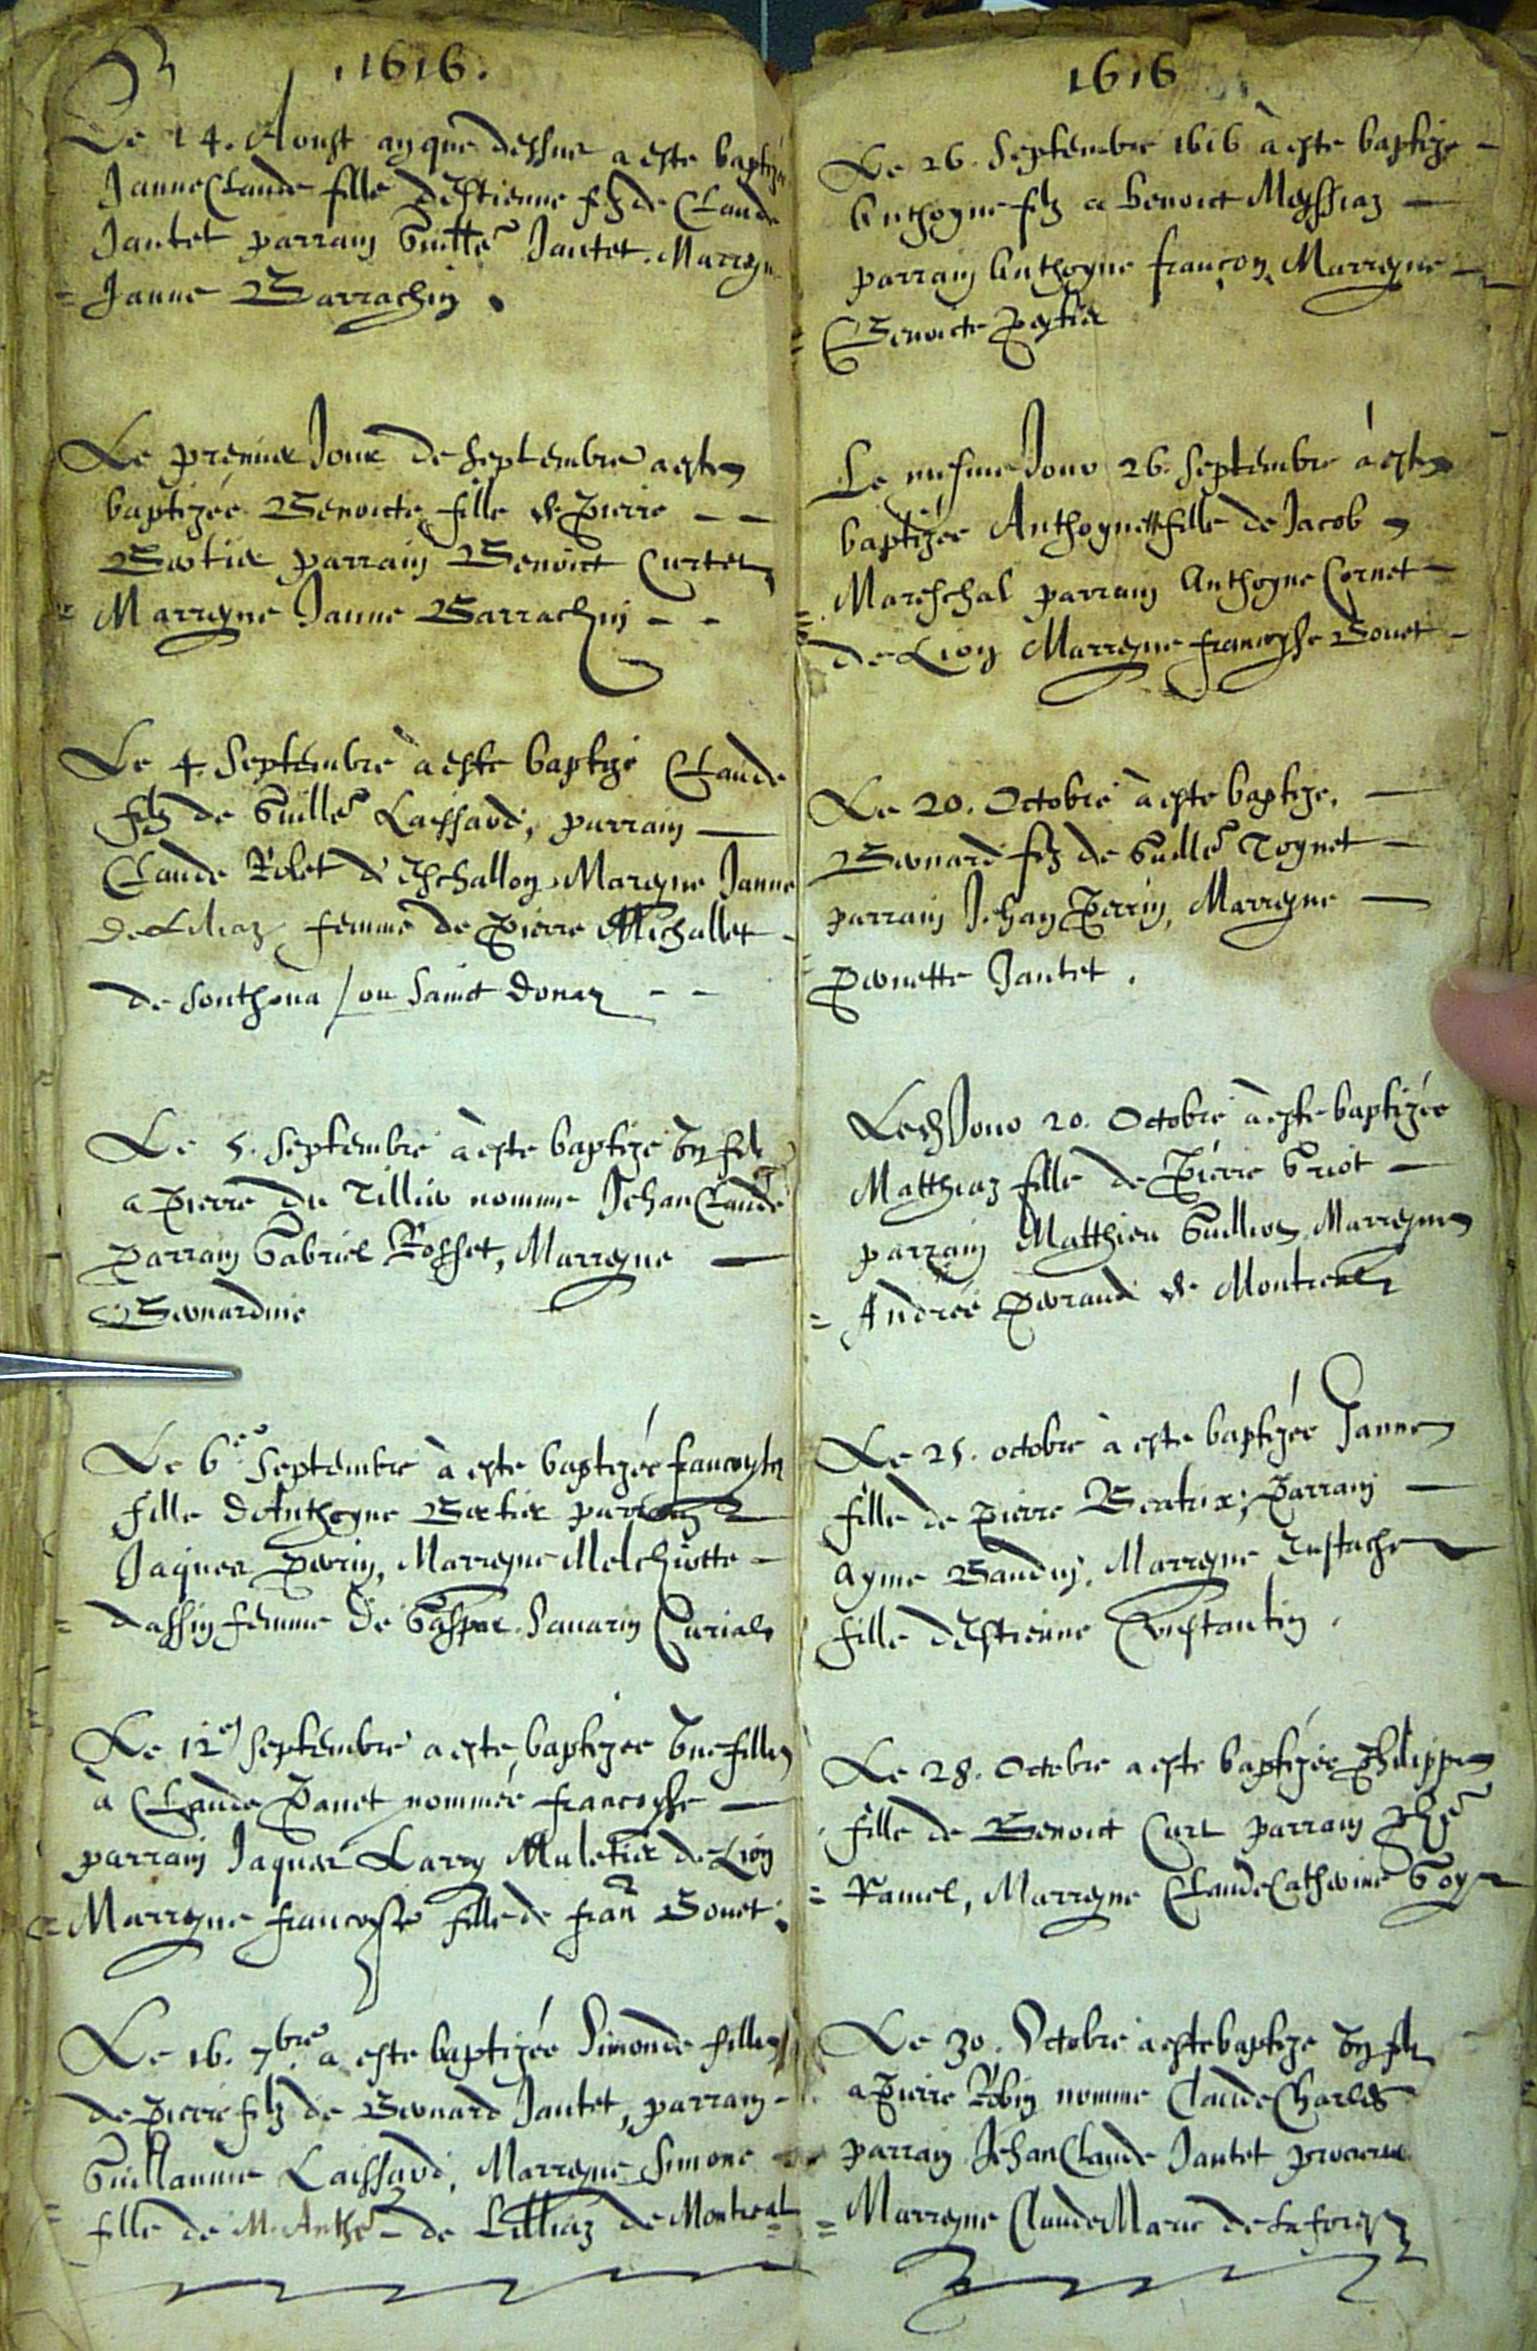 1616.
Le 14. Aoust an que dessus a este baptizée
JanneClaude fille d'Estienne filz de Claude
Jantet parrain Guille Jantet. Marreyne
Janne Barrachin.
Le premier Jour de Septembre a este
baptizée Benoicte fille de Pierre
Bertier parrain Benoict Curtet
Marreyne Janne Barrachin
Le 4. Septembre à este baptizé Claude
filz de Guille Laissard, parrain
Claude Rolet d'Eschallon Mareyne Janne
De Liliaz femme de Pierre Michallet
de Sonthona / ou Sainct Donaz
Le 5. Septembre à este baptizé Un filz
a Pierre du Tillier nomme JehanClaude
Parrain Gabriel Rosset, Marreyne
Bernardine
Le 6e Septembre à este baptizée francoyse
fille d'Anthoyne Bertier parrain
Jaques Perrin, Marreyne Melchiotte
dassin femme de Gaspar Savarin Curial
Le 12e Septembre a este baptizée Une fille
à Claude Panet nommée francoyse
parrain Jaques Larry Muletier de Lion
Marreyne francoyse fille de fran Bonet.
Le 16. 7bre a este baptizée Simonde fille
de Pierre filz de Bernard Jantet, parrain
Guillaume Laissard, Marreyne Simone
fille de M. Anthe de Lilliaz de Montreal
1616
Le 26. Septembre 1616 à este baptize
Anthoyne filz a Benoict Meyssiaz
parrain Anthoyne françon, Marreyne
Benoicte
Le mesme Jour 26. Septembre à este
baptizée Anthoynette fille de Jacob
Mareschal parrain Anthoyne Cornet
de Lion Marreyne francoyse Bonet
Le 20. Octobre à este baptize,
Bernard filz de Guille Tognet
parrain Jehan Perrin, Marreyne
Pernette Jantet.
Led Jour 20. Octobre à este baptizée
Matthiaz fille de Pierre Griot
parrain Matthieu Guillier, Marreyne
Andrée Perraud de Montreal
Le 25. octobre à este baptizée Janne
fille de Pierre Beatrix, Parrain
Ayme Baudin, Marreyne Eustache
fille d'Estienne Constantin.
Le 28. Octobre a este baptizée Philippe
fille de Benoict Curt parrain Phe
Ramel, Marreyne ClaudeCatherine Goy
Le 30. Octobre a este baptize Un filz
a Pierre Robin nomme ClaudeCharles
parrain JehanClaude Jantet
Marreyne ClaudeMarie de la forest